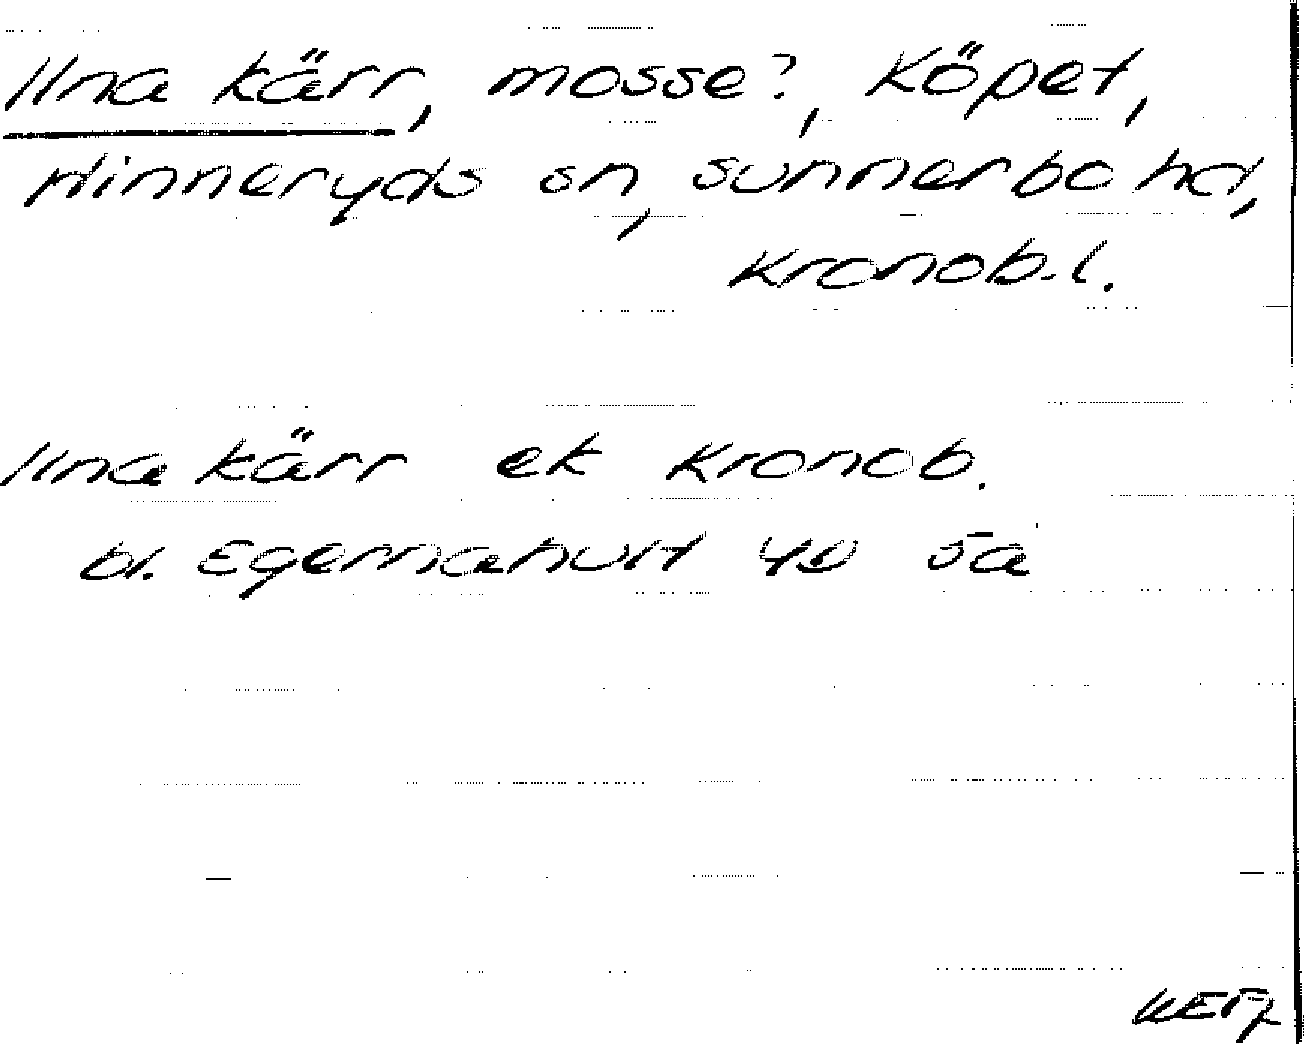 Ilna kärr, mosse?, Köpet,
Hinneryds sn, Sunnerbo hd,
Kronob. l.
Ilna kärr ek Kronob.
bl. Egernahult 4e 5a